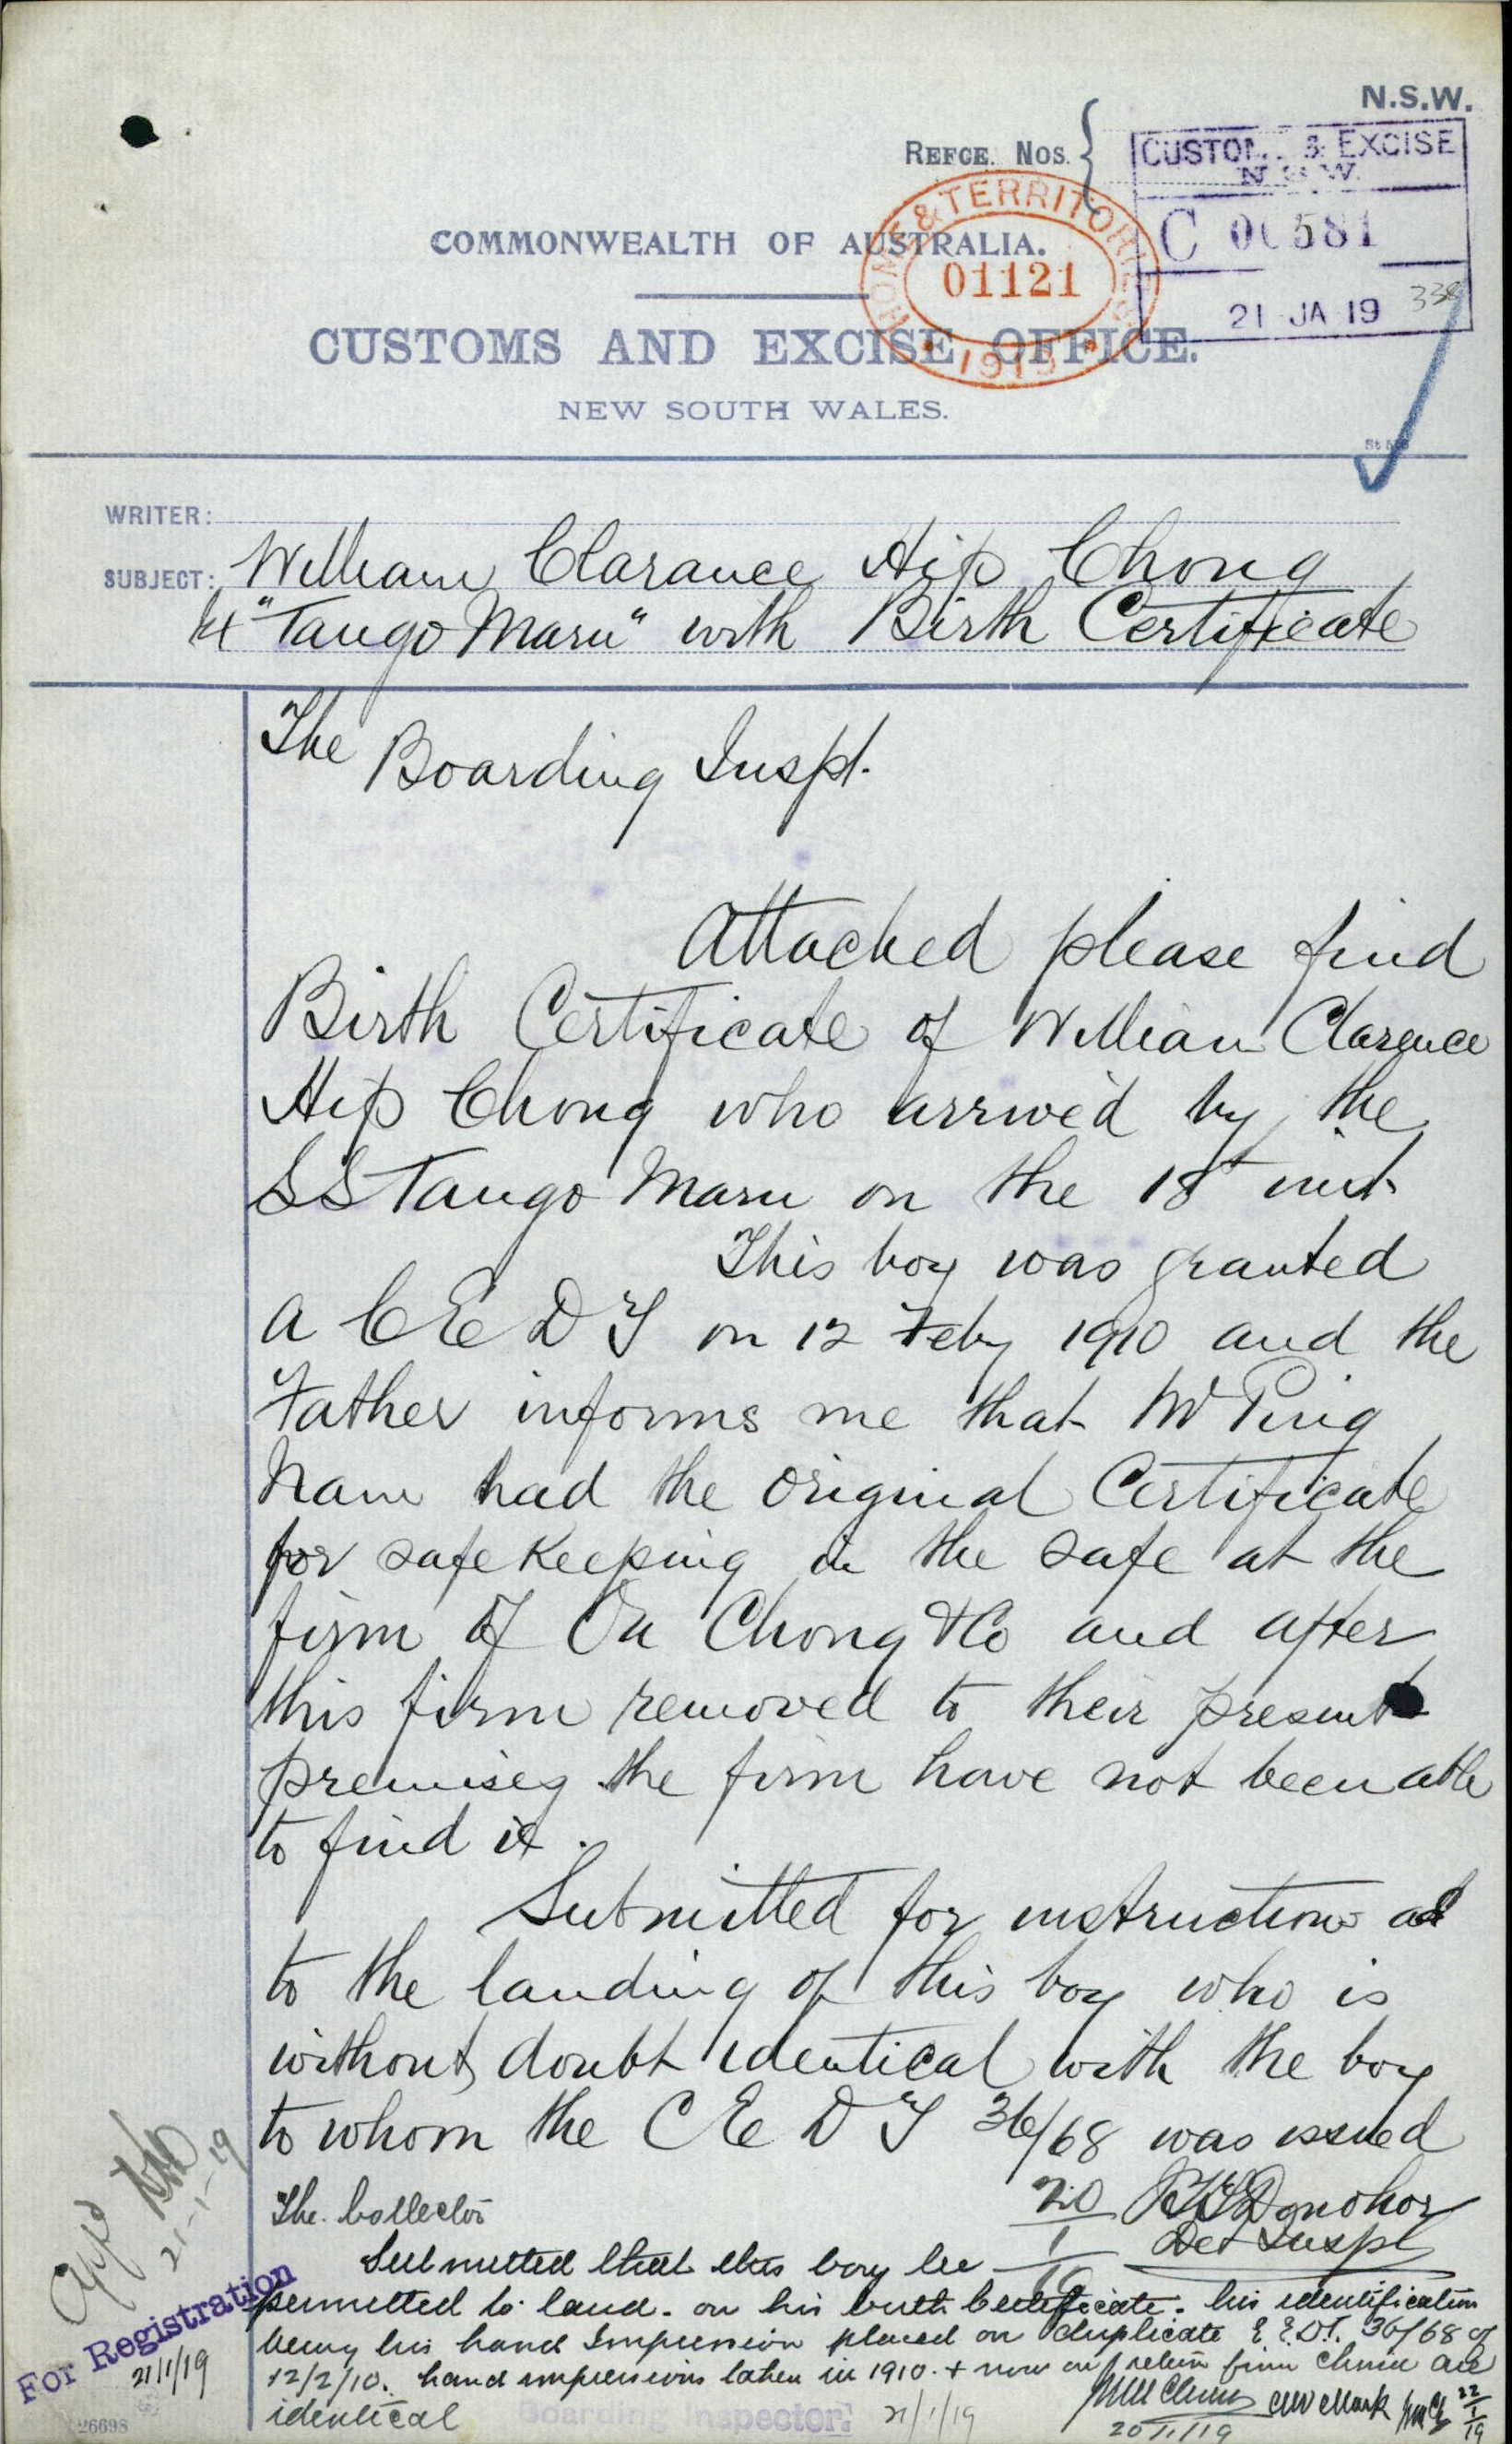 N.S.W.
REFCE. NOS.
CUSTOMS & EXCISE
N.S.W.
C 00581
21 JA 19
338
HOME & TERRITORIES
01121
1919
COMMONWEALTH OF AUSTRALIA.
CUSTOMS AND EXCISE OFFICE.
NEW SOUTH WALES.
WRITER:
SUBJECT: William Clarance Hip Chong
"Tango Maru" with Birth Certificate
The Boarding Inspt.
Attached please find
Birth Certificate of William Clarence
Hip Chong who arrived by the
SS Tango Maru on the 18th inst
This boy was granted
a C E D T on 12 Feby 1910 and the
Father informs me that Mr Ping
Nam had the original Certificate
for safe keeping in the safe at the
firm of On Chong & Co and after
this firm removed to their present
premises the firm have not been able
to find it.
Submitted for instructions as
to the landing of this boy who is
without doubt identical with the boy
to whom the C E D T 36/68 was issued
20/1/19 Donohoe
Det Inspt
The Collector
Submitted that this boy be
permitted to land on his birth certificate. his identification
being his hand impression placed on duplicate C.E.D.T. 36/68 of
12/2/10. hand impressions taken in 1910 + now on return from China are
identical
21-1-19
For Registration
21/1/19
Boarding Inspector.
21/1/19
20/1/19
22/1/19
26698